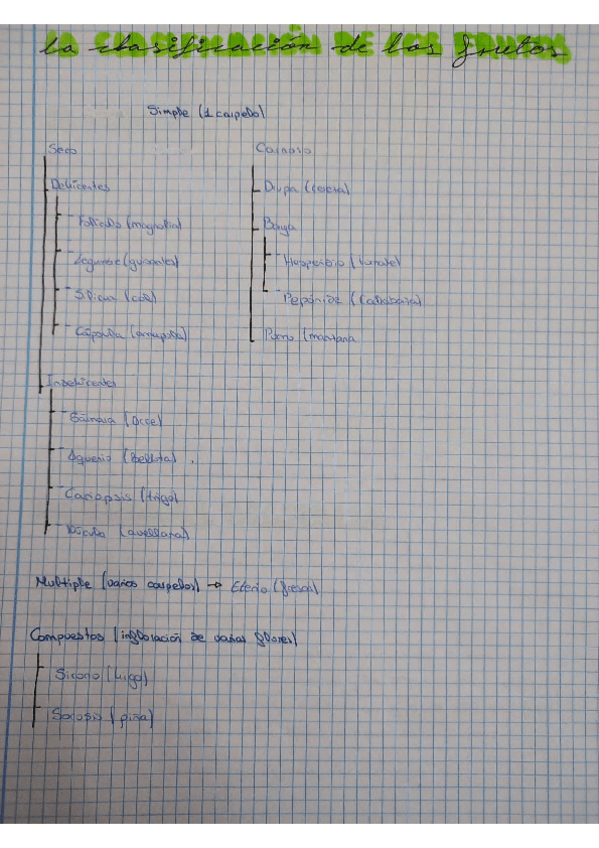 La clasificación de los frutos
Simple (1 carpelo)
Seco
Carnoso
Dehicentes
Folículo (magnolia)
Legumbre (guisantes)
Silicua (col)
Cápsula (amapola)
Indehicentes
Sámara (Arce)
Aquenio (Bellota)
Cariopsis (trigo)
Núcula (avellana)
Drupa (cereza)
Baya
Hesperidio (tomate)
Pepónide (calabaza)
Pomo (manzana
Multiple (varios carpelos) → Eterio (fresón)
Compuestos (infloración de varias flores)
Sicono (higo)
Sorosis (piña)